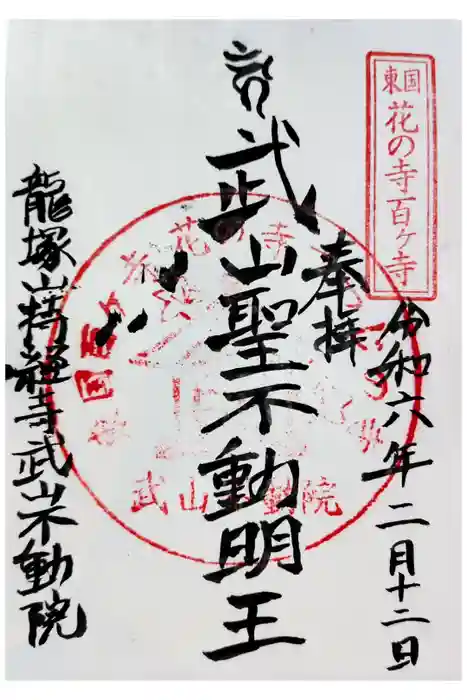 東国
花の寺百ヶ寺
令和六年二月十二日
奉拝
武山聖不動明王
龍塚山持経寺武山不動院
武山不動院